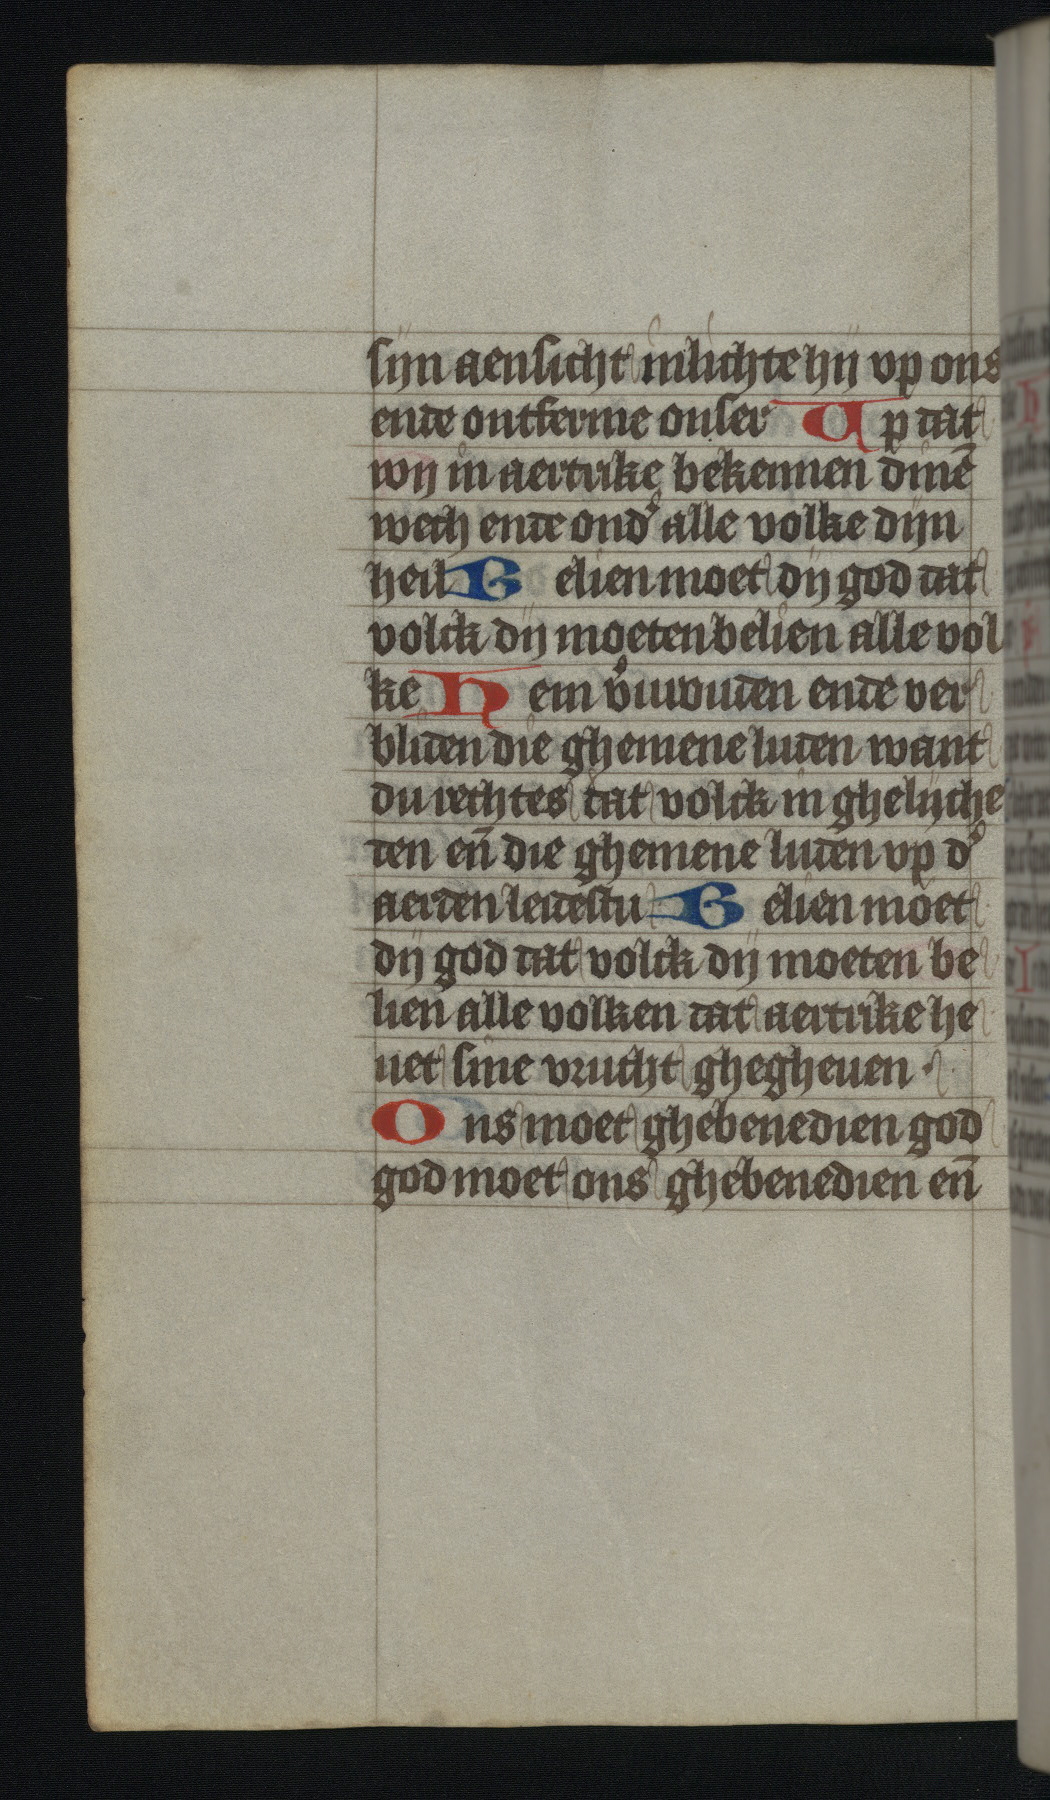 sijn aensicht inlichte hij vp ons
ende ontferme onser Up dat
wij in aertrike bekennen dinē
wech ende ond͛ alle volke dijn
heil Belien moet dij god dat
volck dij moeten belien alle vol
ke Hem v͛urouden ende ver
bliden die ghemene luden want
du rechtes dat volck in ghelijche
den en̄ die ghemene luden vp d͛
aerden leidestu Belien moet
dij god dat volck dij moeten be
lien alle volken dat aertrike he
uet sine vrucht ghegheuen ·
Ons moet ghebenedien god
god moet ons ghebenedien en̄